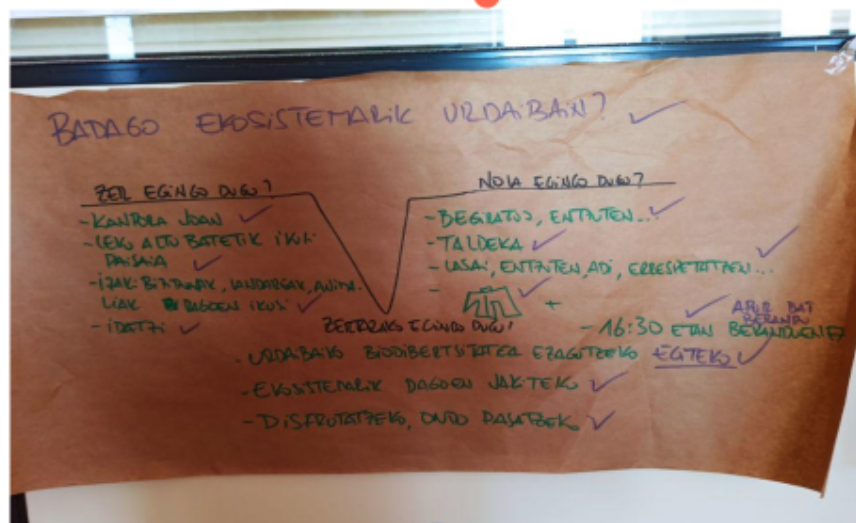 BADAGO EKOSISTEMARIK URDAIBAIN?
ZER EGINGO DUGU?
- KANPORA JOAN
- LEKU ALTU BATETIK IKUSI
PAISAIA
- IZAKI BIZIDUNAK, LANDAREAK, ANIMA-
LIAK DAGOEN IKUSI
- IDATZI
NOLA EGINGO DUGU?
- BEGIRATUZ, ENTZUTEN...
- TALDEKA
- LASAI, ENTZUTEN, ADI, ERRESPETATZEN...
- +
APUR BAT
BERANDU
- 16:30 ETAN BERANDUENEZ
ZERTARAKO EGINGO DUGU?
- URDAIBAIKO BIODIBERTSITATEA EZAGUTZEKO EGITEKO
- EKOSISTEMARIK DAGOEN JAKITEKO
- DISFRUTATZEKO, ONDO PASATZEKO